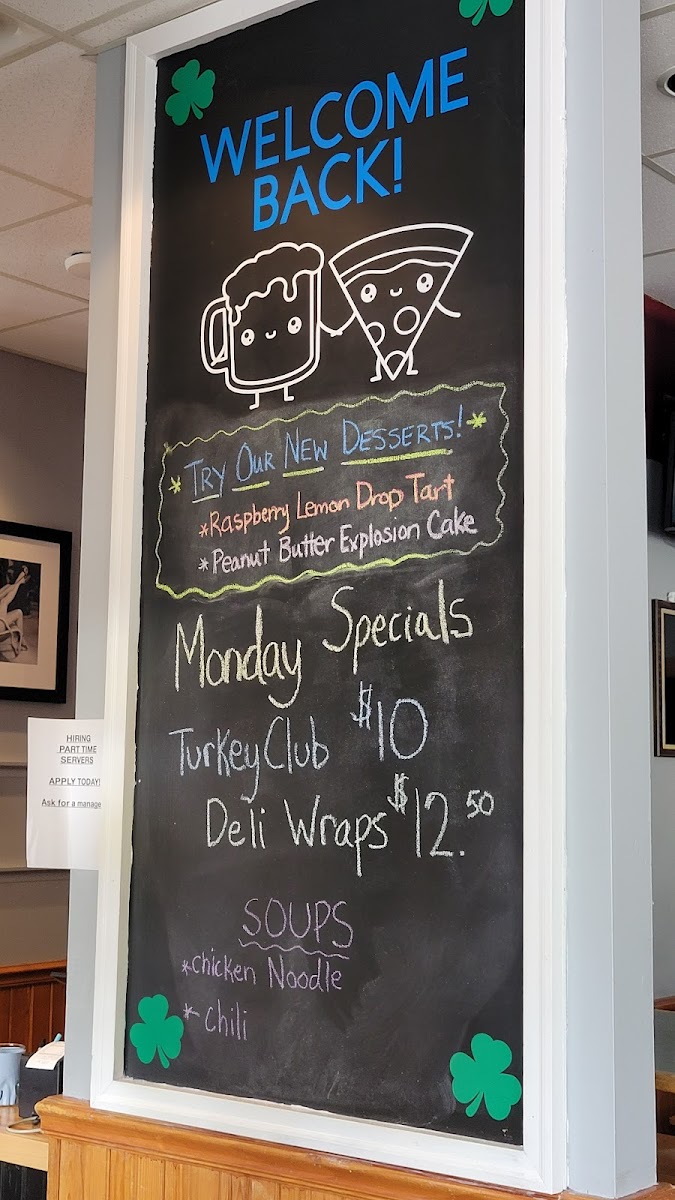 WELCOME
BACK!
* TRY OUR NEW DESSERTS! *
* Raspberry Lemon Drop Tart
* Peanut Butter Explosion Cake
Monday Specials
Turkey Club $10
Deli Wraps $12.50
SOUPS
* chicken Noodle
* chili
HIRING
PART TIME
SERVERS
APPLY TODAY!
Ask for a manage